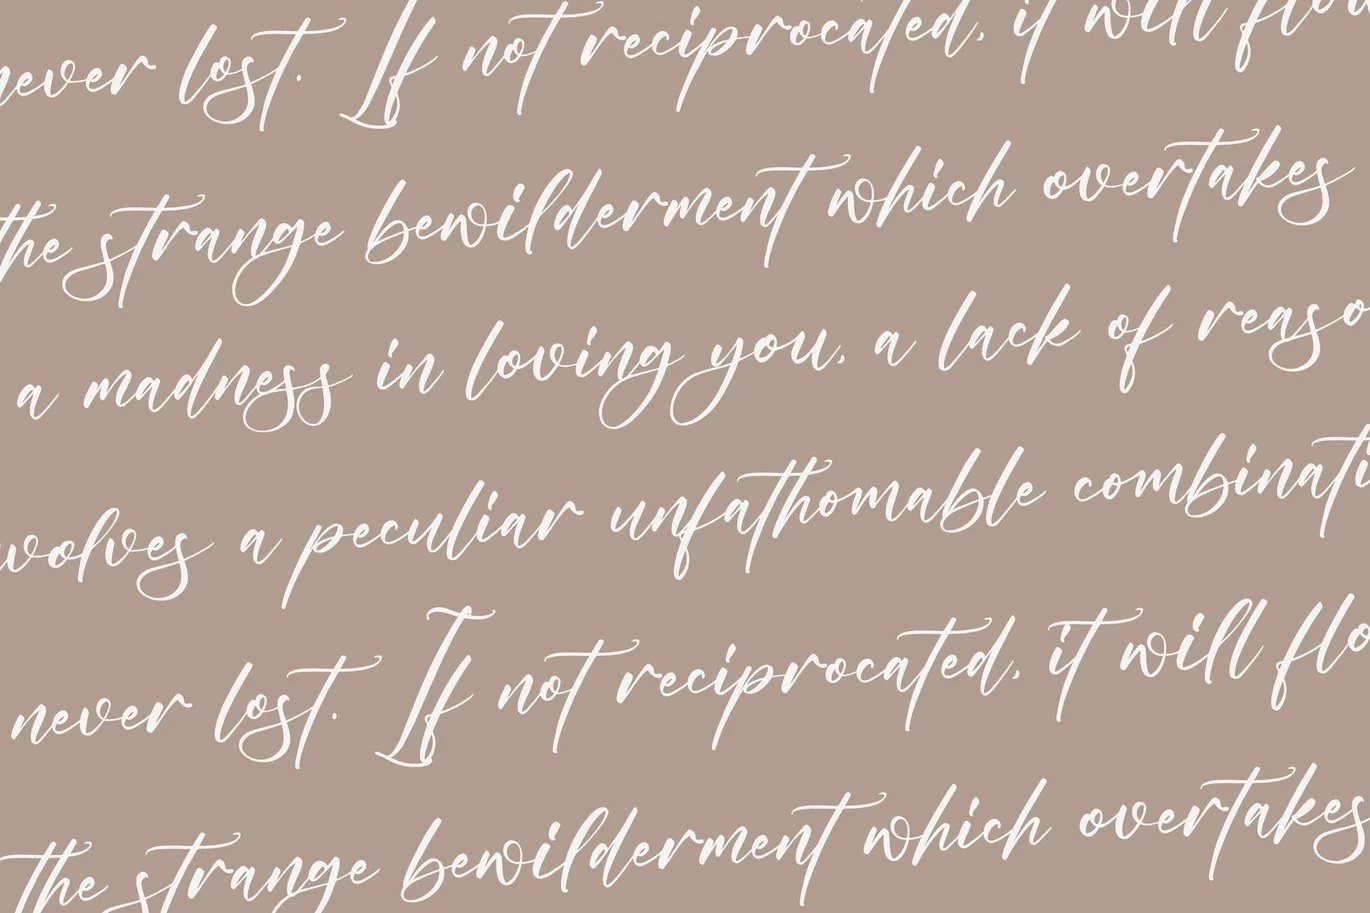 never lost. If not reciprocated, it will flow
the strange bewilderment which overtakes
a madness in loving you, a lack of reaso
volves a peculiar unfathomable combinati
never lost. If not reciprocated, it will flo
the strange bewilderment which overtakes